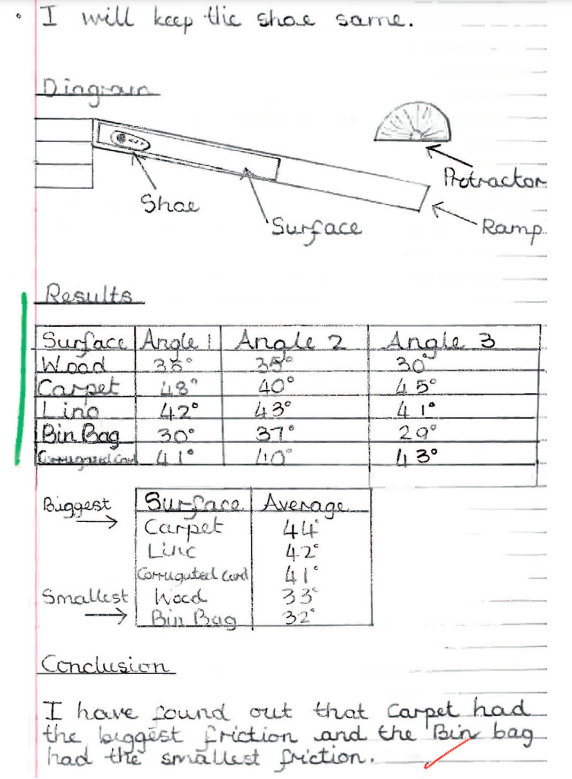 • I will keep the shoe same.
Diagram
Protractor
Shoe
Surface
Ramp
Results
Surface Angle 1 Angle 2 Angle 3
Wood 35° 35° 30°
Carpet 48° 40° 45°
Lino 42° 43° 41°
Bin Bag 30° 37° 29°
Corrugated Card 41° 40° 43°
Biggest
Surface Average
Carpet 44°
Lino 42°
Corrugated Card 41°
Smallest
Wood 33°
Bin Bag 32°
Conclusion
I have found out that Carpet had
the biggest friction and the Bin bag
had the smallest friction.